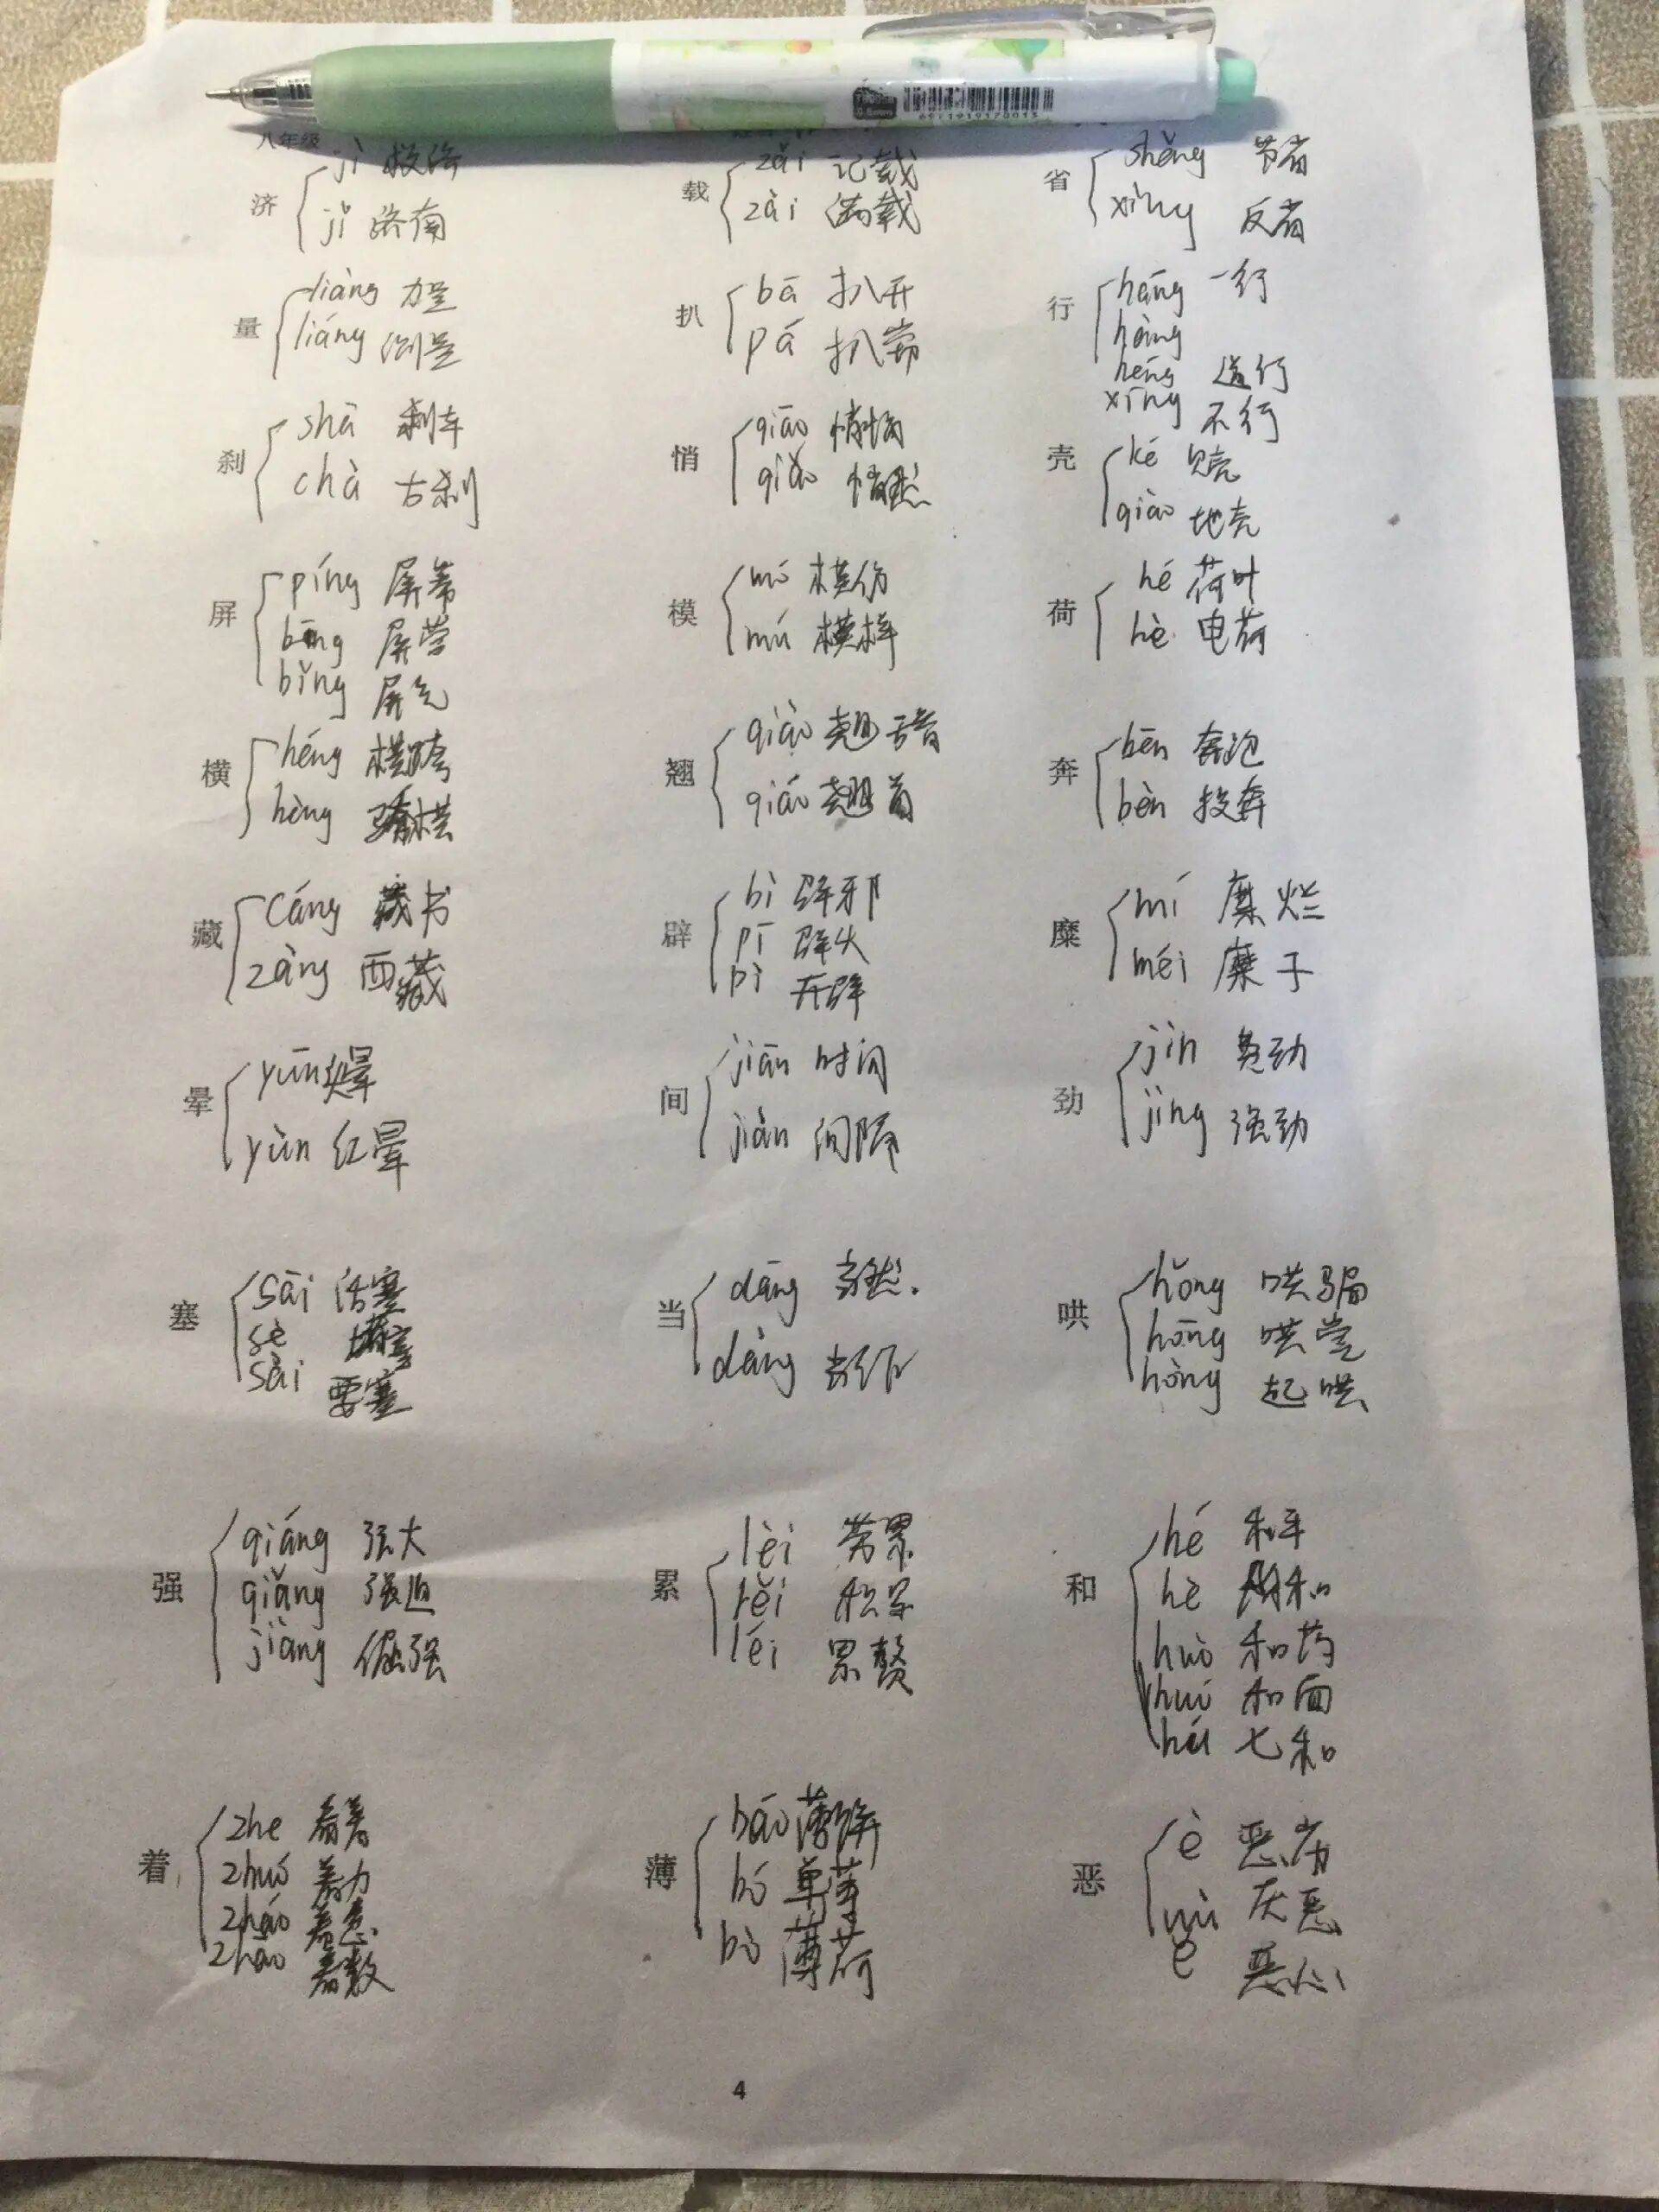 6971919170013
八年级
济 jì 救济
jǐ 济南
量 liàng 力量
liáng 测量
刹 shā 刹车
chà 古刹
屏 píng 屏幕
bīng 屏营
bǐng 屏气
横 héng 横跨
hèng 骄横
藏 cáng 藏书
zàng 西藏
晕 yūn 头晕
yùn 红晕
塞 sāi 活塞
sè 堵塞
sài 要塞
强 qiáng 强大
qiǎng 强迫
jiàng 倔强
着 zhe 看着
zhuó 着力
zháo 着急
zhāo 着数
载 zǎi 记载
zài 满载
扒 bā 扒开
pá 扒窃
悄 qiāo 悄悄
qiǎo 悄然
模 mó 模仿
mú 模样
翘 qiào 翘
qiáo 翘首
辟 bì 辟邪
pī 辟
pì 开辟
间 jiān 时间
jiàn 间隔
当 dāng 当然.
dàng 当作
累 lèi 劳累
lěi 积累
léi 累赘
薄 báo 薄饼
bó 单薄
bò 薄荷
省 shěng 节省
xǐng 反省
行 háng 一行
hàng
héng 道行
xíng 不行
壳 ké 贝壳
qiào 地壳
荷 hé 荷叶
hè 电荷
奔 bēn 奔跑
bèn 投奔
糜 mí 糜烂
méi 糜子
劲 jìn 费劲
jìng 强劲
哄 hǒng 哄骗
hōng 哄堂
hòng 起哄
和 hé 和平
hè 附和
huò 和药
huó 和面
hú 七和
恶 è 恶劣
wù 厌恶
ě 恶心
4